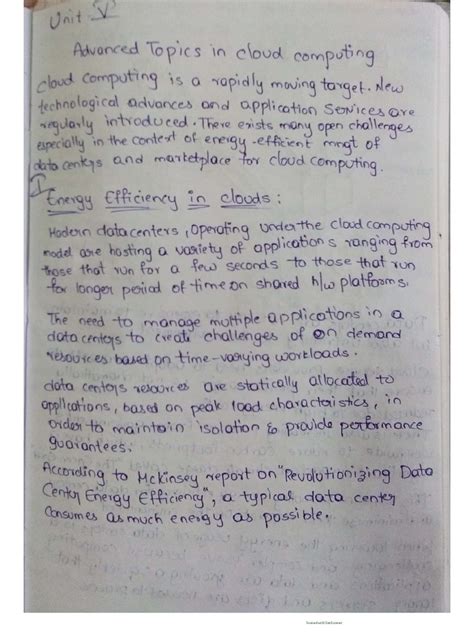 Unit V
Advanced Topics in cloud computing
cloud computing is a rapidly moving target. New
technological advances and application Services are
regularly introduced. There exists many open challenges
especially in the context of energy-efficient mngt of
data centers and marketplace for cloud computing.
1
Energy Efficiency in clouds:
Modern datacenters, operating under the cloud computing
model are hosting a variety of applications ranging from
those that run for a few seconds to those that run
for longer period of time on shared h/w platforms.
The need to manage multiple applications in a
data centers to create challenges of on demand
resources based on time-varying workloads.
data centers resources are statically allocated to
applications, based on peak load charactaistics, in
order to maintain isolation & provide performance
guarantees.
According to McKinsey report on "Revolutionizing Data
Center Energy Efficiency", a typical data center
consumes as much energy as possible.